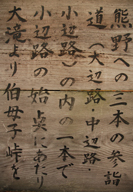 熊野への三本の参詣
道(大辺路・中辺路・
小辺路)の内の一本で
小辺路の始点にあたり
大滝より伯母子峠を